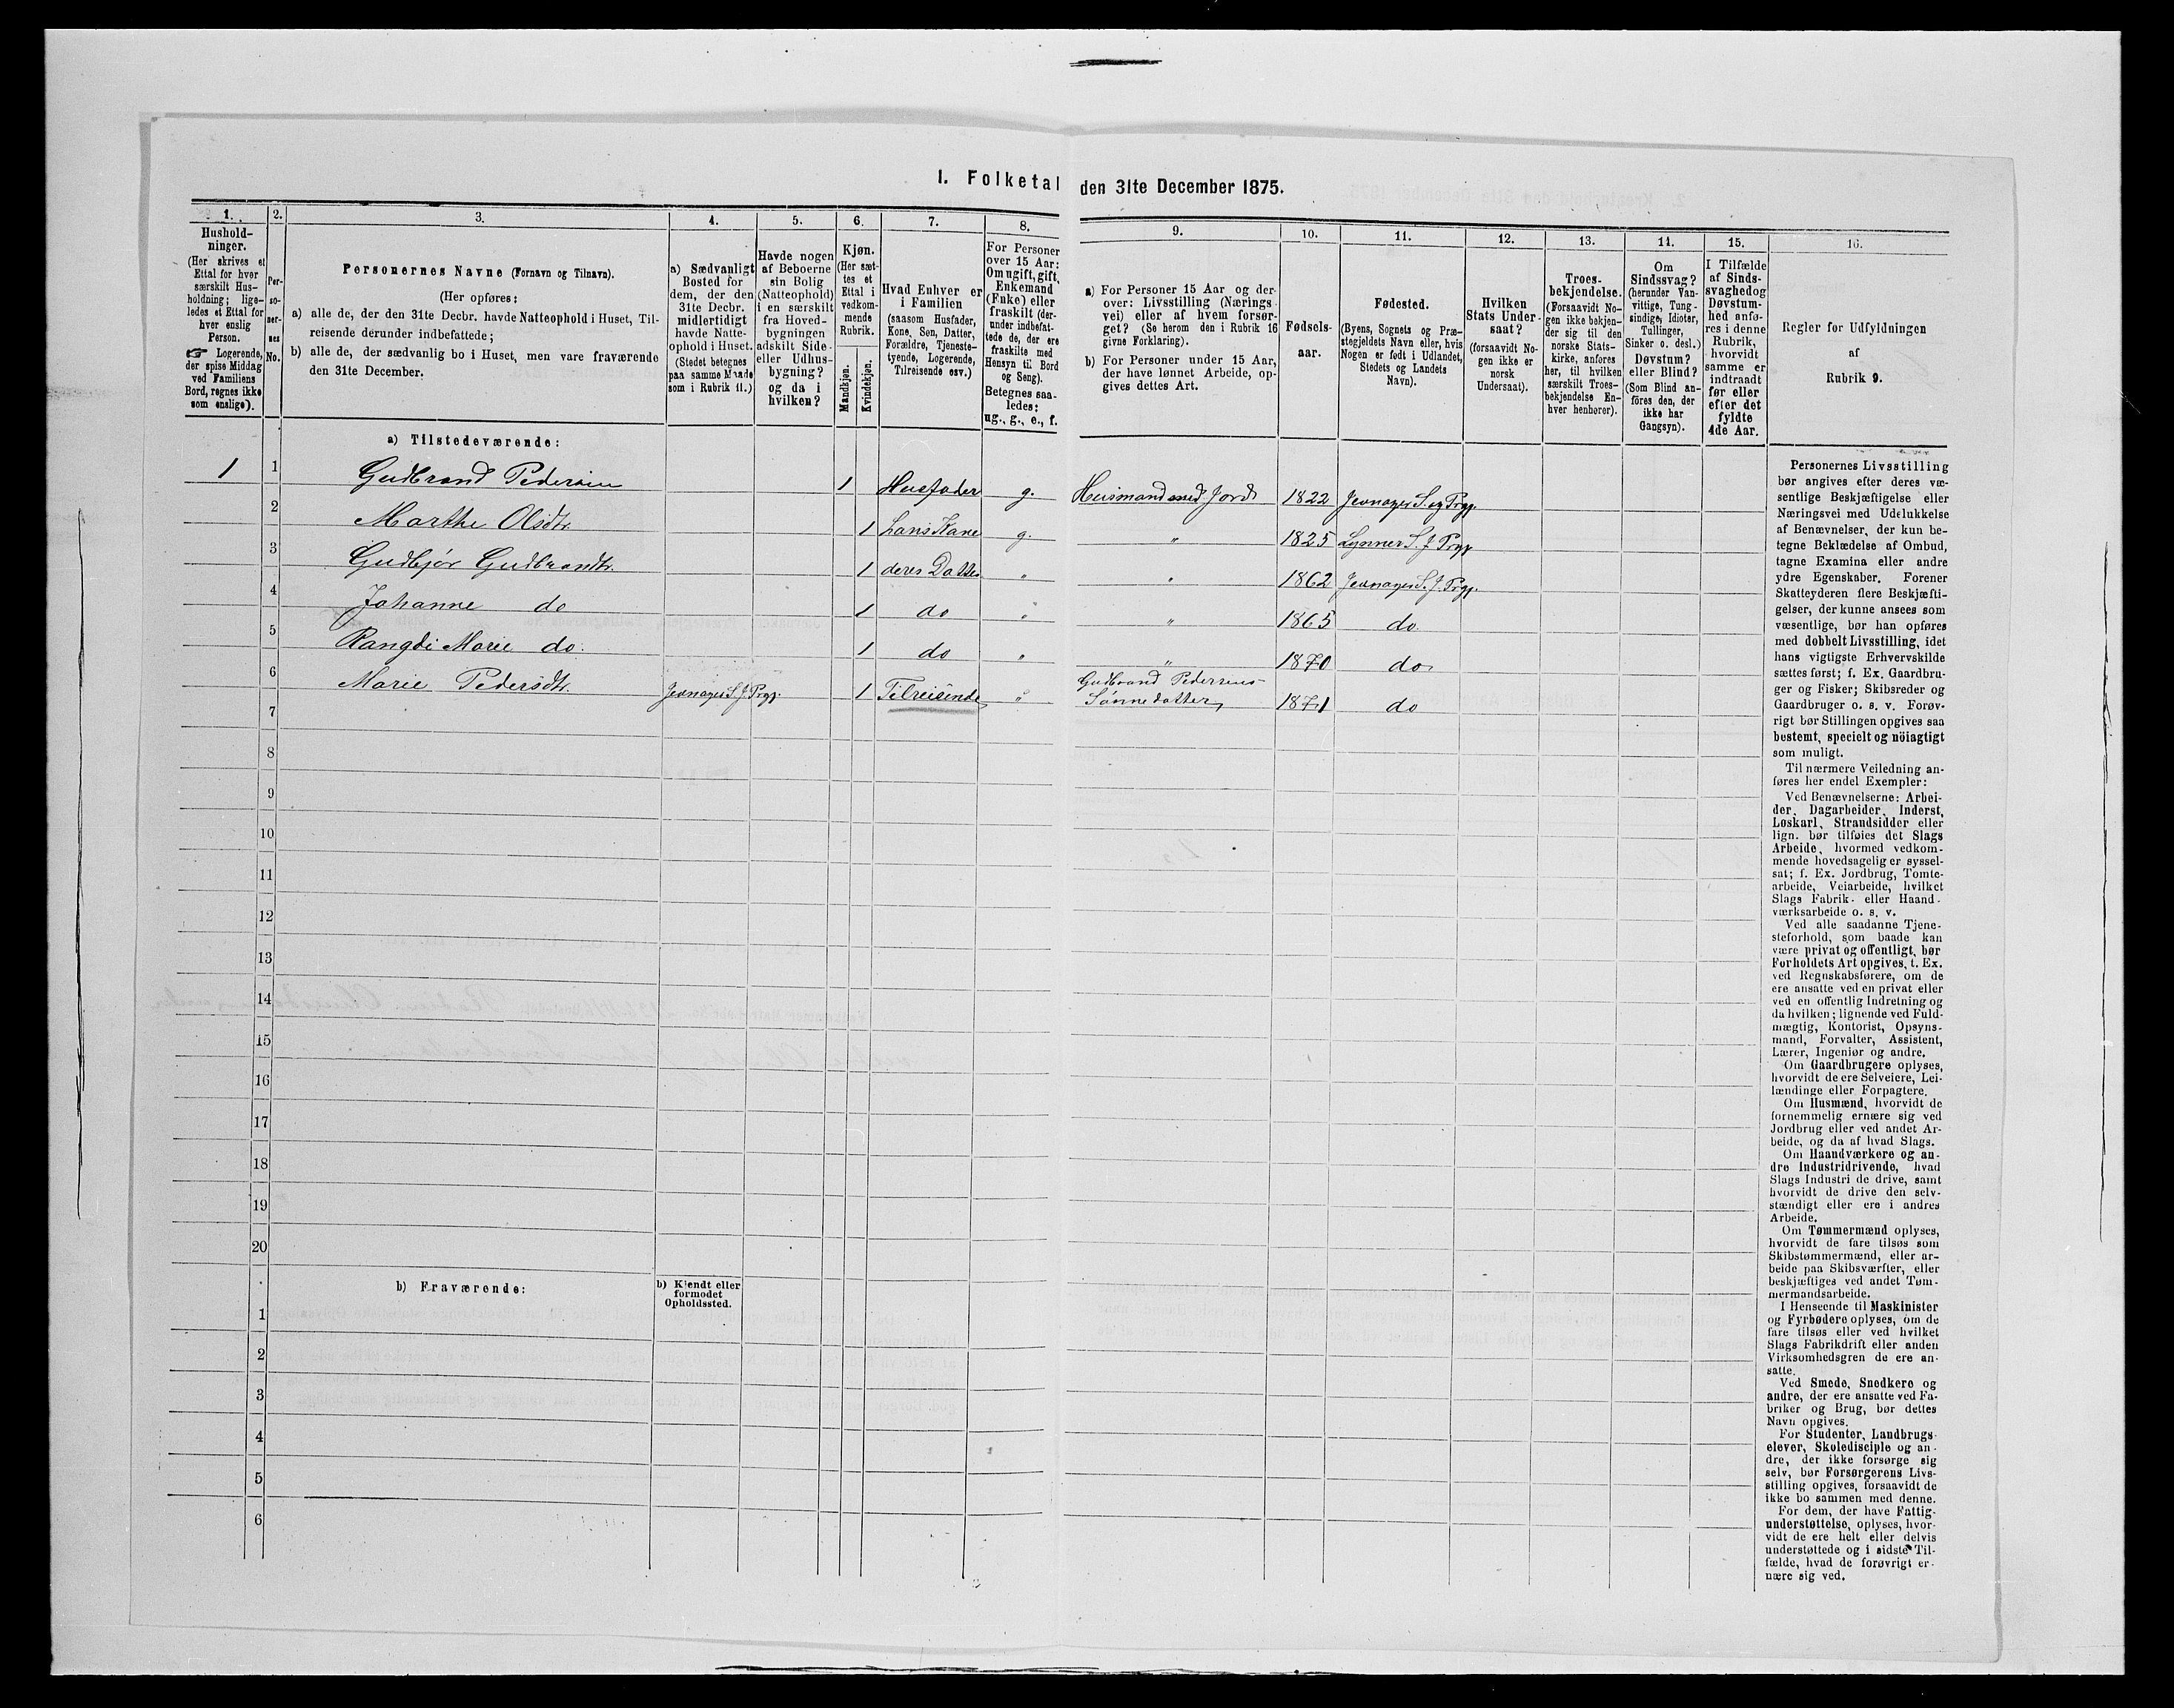 I. Folketal den 31te December 1875.
1. 2. 3. 4. 5. 6. 7. 8. 9. 10. 11. 12. 13. 14. 15. 16.
Hushold-
ninger.
(Her skrives et
Ettal for hver
særskilt Hus-
holdning; lige-
ledes et Ettal for
hver enslig
Person.
☞ Logerende,
der spise Middag
ved Familiens
Bord, regnes ikke
som enslige).
Per-
so-
ner-
nes
No.
Personernes Navne (Fornavn og Tilnavn).
(Her opføres:
a) alle de, der den 31te Decbr. havde Natteophold i Huset, Til-
reisende derunder indbefattede;
b) alle de, der sædvanlig bo i Huset, men vare fraværende
den 31te December.
a) Sædvanligt
Bosted for
dem, der den
31te Decbr.
midlertidigt
havde Natte-
ophold i Huset.
(Stedet betegnes
paa samme Maade
som i Rubrik 11.)
Havde nogen
af Beboerne
sin Bolig
(Natteophold)
i en særskilt
fra Hoved-
bygningen
adskilt Side-
eller Udhus-
bygning?
og da i
hvilken?
Kjøn.
(Her sæt-
tes et
Ettal i
vedkom-
mende
Rubrik.
Mandkjøn.
Kvindekjøn.
Hvad Enhver er
i Familien
(saasom Husfader,
Kone, Søn, Datter,
Forældre, Tjeneste-
tyende, Logerende,
Tilreisende osv.)
For Personer
over 15 Aar:
Om ugift, gift,
Enkemand
(Enke) eller
fraskilt (der-
under indbefat-
tede de, der ere
fraskilte med
Hensyn til Bord
og Seng).
Betegnes saa-
ledes:
ug., g., e., f.
a) For Personer 15 Aar og der-
over: Livsstilling (Nærings-
vei) eller af hvem forsør-
get? (Se herom den i Rubrik 16
givne Forklaring).
b) For Personer under 15 Aar,
der have lønnet Arbeide, op-
gives dettes Art.
Fødsels-
aar.
Fødested.
(Byens, Sognets og Præ-
stegjeldets Navn eller, hvis
Nogen er født i Udlandet,
Stedets og Landets
Navn).
Hvilken
Stats Under-
saat?
(forsaavidt No-
gen ikke er
norsk
Undersaat).
Troes-
bekjendelse.
(Forsaavidt No-
gen ikke bekjen-
der sig til den
norske Stats-
kirke, anføres
her, til hvilken
særskilt Troes-
bekjendelse En-
hver henhører).
Om
Sindssvag?
(herunder Van-
vittige, Tung-
sindige, Idioter,
Tullinger,
Sinker o. desl.)
Døvstum?
eller Blind?
(Som Blind an-
føres den, der
ikke har
Gangsyn).
I Tilfælde
af Sinds-
svaghed og
Døvstum-
hed anfø-
res i denne
Rubrik,
hvorvidt
samme er
indtraadt
før eller
efter det
fyldte
4de Aar.
Regler for Udfyldningen
af
Rubrik 9.
a) Tilstedeværende:
1 1 Gudbrand Pedersen 1 Husfader g. Huismand med Jord 1822 Jevnager S. og Prgj.
2 Marthe Olsdtr. 1 hans Kone g. " 1825 Lynner S. J. Prgj.
3 Gudbjør Gudbrandtr. 1 deres Datter " " 1862 Jevnager S. J. Prgj.
4 Johanne do 1 do " " 1865 do.
5 Rangdi Marie do. 1 do " " 1870 do
6 Marie Pedersdtr. Jevnager S. J. Prgj. 1 Tilreisende " Gudbrand Pedersens
Sønnedatter 1871 do
7
8
9
10
11
12
13
14
15
16
17
18
19
20
b) Fraværende:
b) Kjendt eller
formodet
Opholdssted.
1
2
3
4
5
6
Personernes Livsstilling
bør angives efter deres væ-
sentlige Beskjæftigelse eller
Næringsvei med Udelukkelse
af Benævnelser, der kun be-
tegne Beklædelse af Ombud,
tagne Examina eller andre
ydre Egenskaber. Forener
Skatteyderen flere Beskjæfti-
gelser, der kunne ansees som
væsentlige, bør han opføres
med dobbelt Livsstilling, idet
hans vigtigste Erhvervskilde
sættes først; f. Ex. Gaardbru-
ger og Fisker; Skibsreder og
Gaardbruger o. s. v. Forøv-
rigt bør Stillingen opgives saa
bestemt, specielt og nöiagtigt
som muligt.
Til nærmere Veiledning an-
føres her endel Exempler:
Ved Benævnelserne: Arbei-
der, Dagarbeider, Inderst,
Løskarl, Strandsidder eller
lign. bør tilføies det Slags
Arbeide, hvormed vedkom-
mende hovedsagelig er syssel-
sat; f. Ex. Jordbrug, Tomte-
arbeide, Veiarbeide, hvilket
Slags Fabrik- eller Haand-
værksarbeide o. s. v.
Ved alle saadanne Tjene-
steforhold, som baade kan
være privat og offentligt, bør
Forholdets Art opgives, t. Ex.
ved Regnskabsførere, om de
ere ansatte ved en privat eller
ved en offentlig Indretning og
da hvilken; lignende ved Fuld-
mægtig, Kontorist, Opsyns-
mand, Forvalter, Assistent,
Lærer, Ingeniør og andre.
Om Gaardbrugere oplyses,
hvorvidt de ere Selveiere, Lei-
lændinge eller Forpagtere.
Om Husmænd, hvorvidt de
fornemmelig ernære sig ved
Jordbrug eller ved andet Ar-
beide, og da af hvad Slags.
Om Haandværkere og an-
dre Industridrivende, hvad
Slags Industri de drive, samt
hvorvidt de drive den selv-
stændigt eller ere i andres
Arbeide.
Om Tømmermænd oplyses,
hvorvidt de fare tilsøs som
Skibstømmermænd, eller ar-
beide paa Skibsværfter, eller
beskjæftiges ved andet Tøm-
mermandsarbeide.
I Henseende til Maskinister
og Fyrbødere oplyses, om de
fare tilsøs eller ved hvilket
Slags Fabrikdrift eller anden
Virksomhedsgren de ere an-
satte.
Ved Smede, Snedkere og
andre, der ere ansatte ved Fa-
briker og Brug, bør dettes
Navn opgives.
For Studenter, Landbrugs-
elever, Skoledisciple og an-
dre, der ikke forsørge sig
selv, bør Forsørgerens Livs-
stilling opgives, forsaavidt de
ikke bo sammen med denne.
For dem, der have Fattig-
understøttelse, oplyses, hvor-
vidt de ere helt eller delvis
understøttede og i sidste Til-
fælde, hvad de forøvrigt er-
nære sig ved.